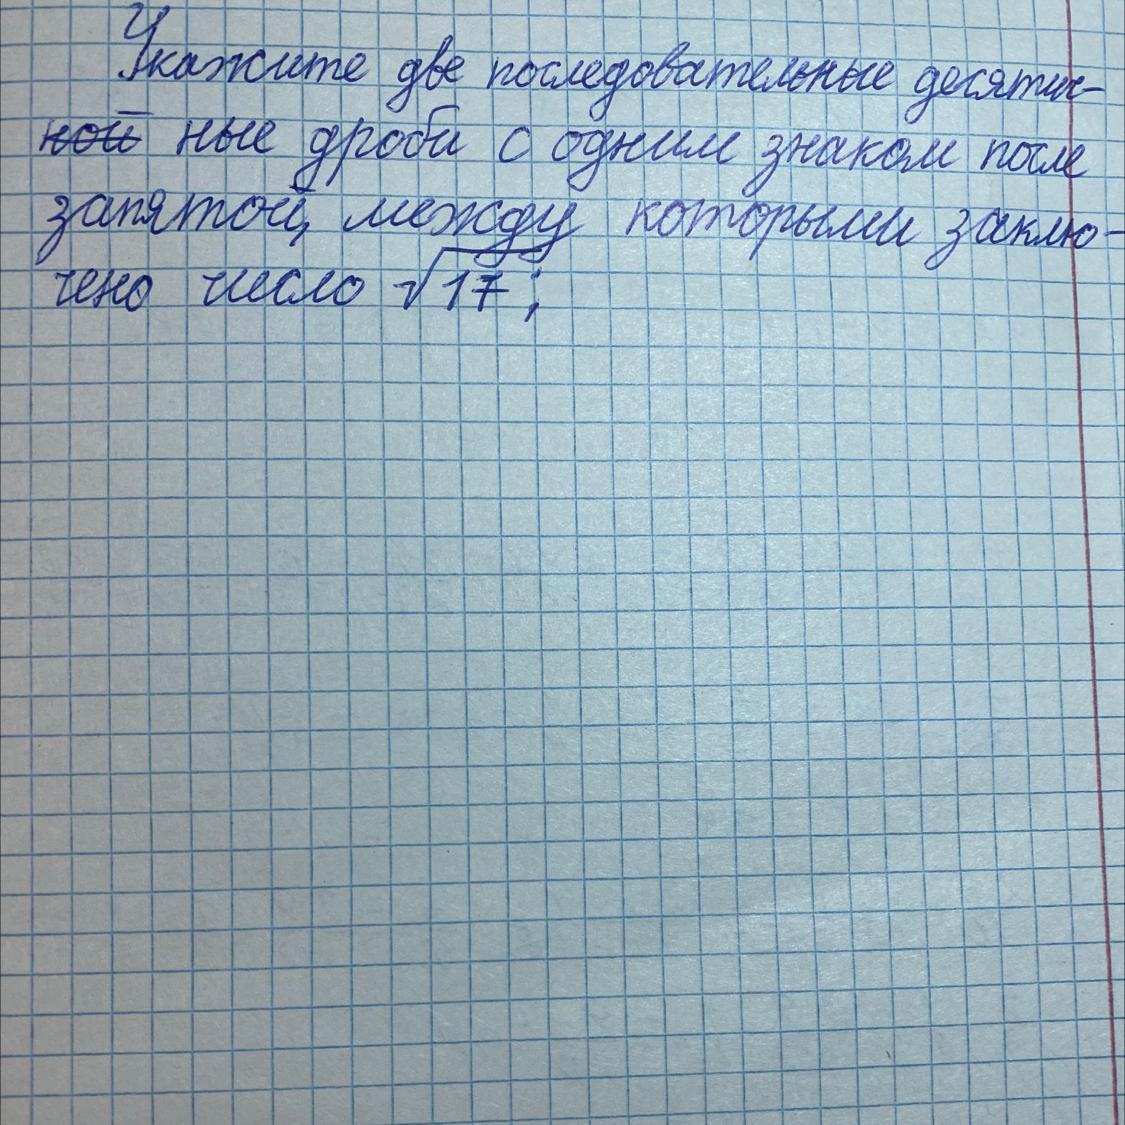 Укажите две последовательные десятич-
ной ные дроби с одним знаком после
запятой, между которыми заклю-
чено число √17;